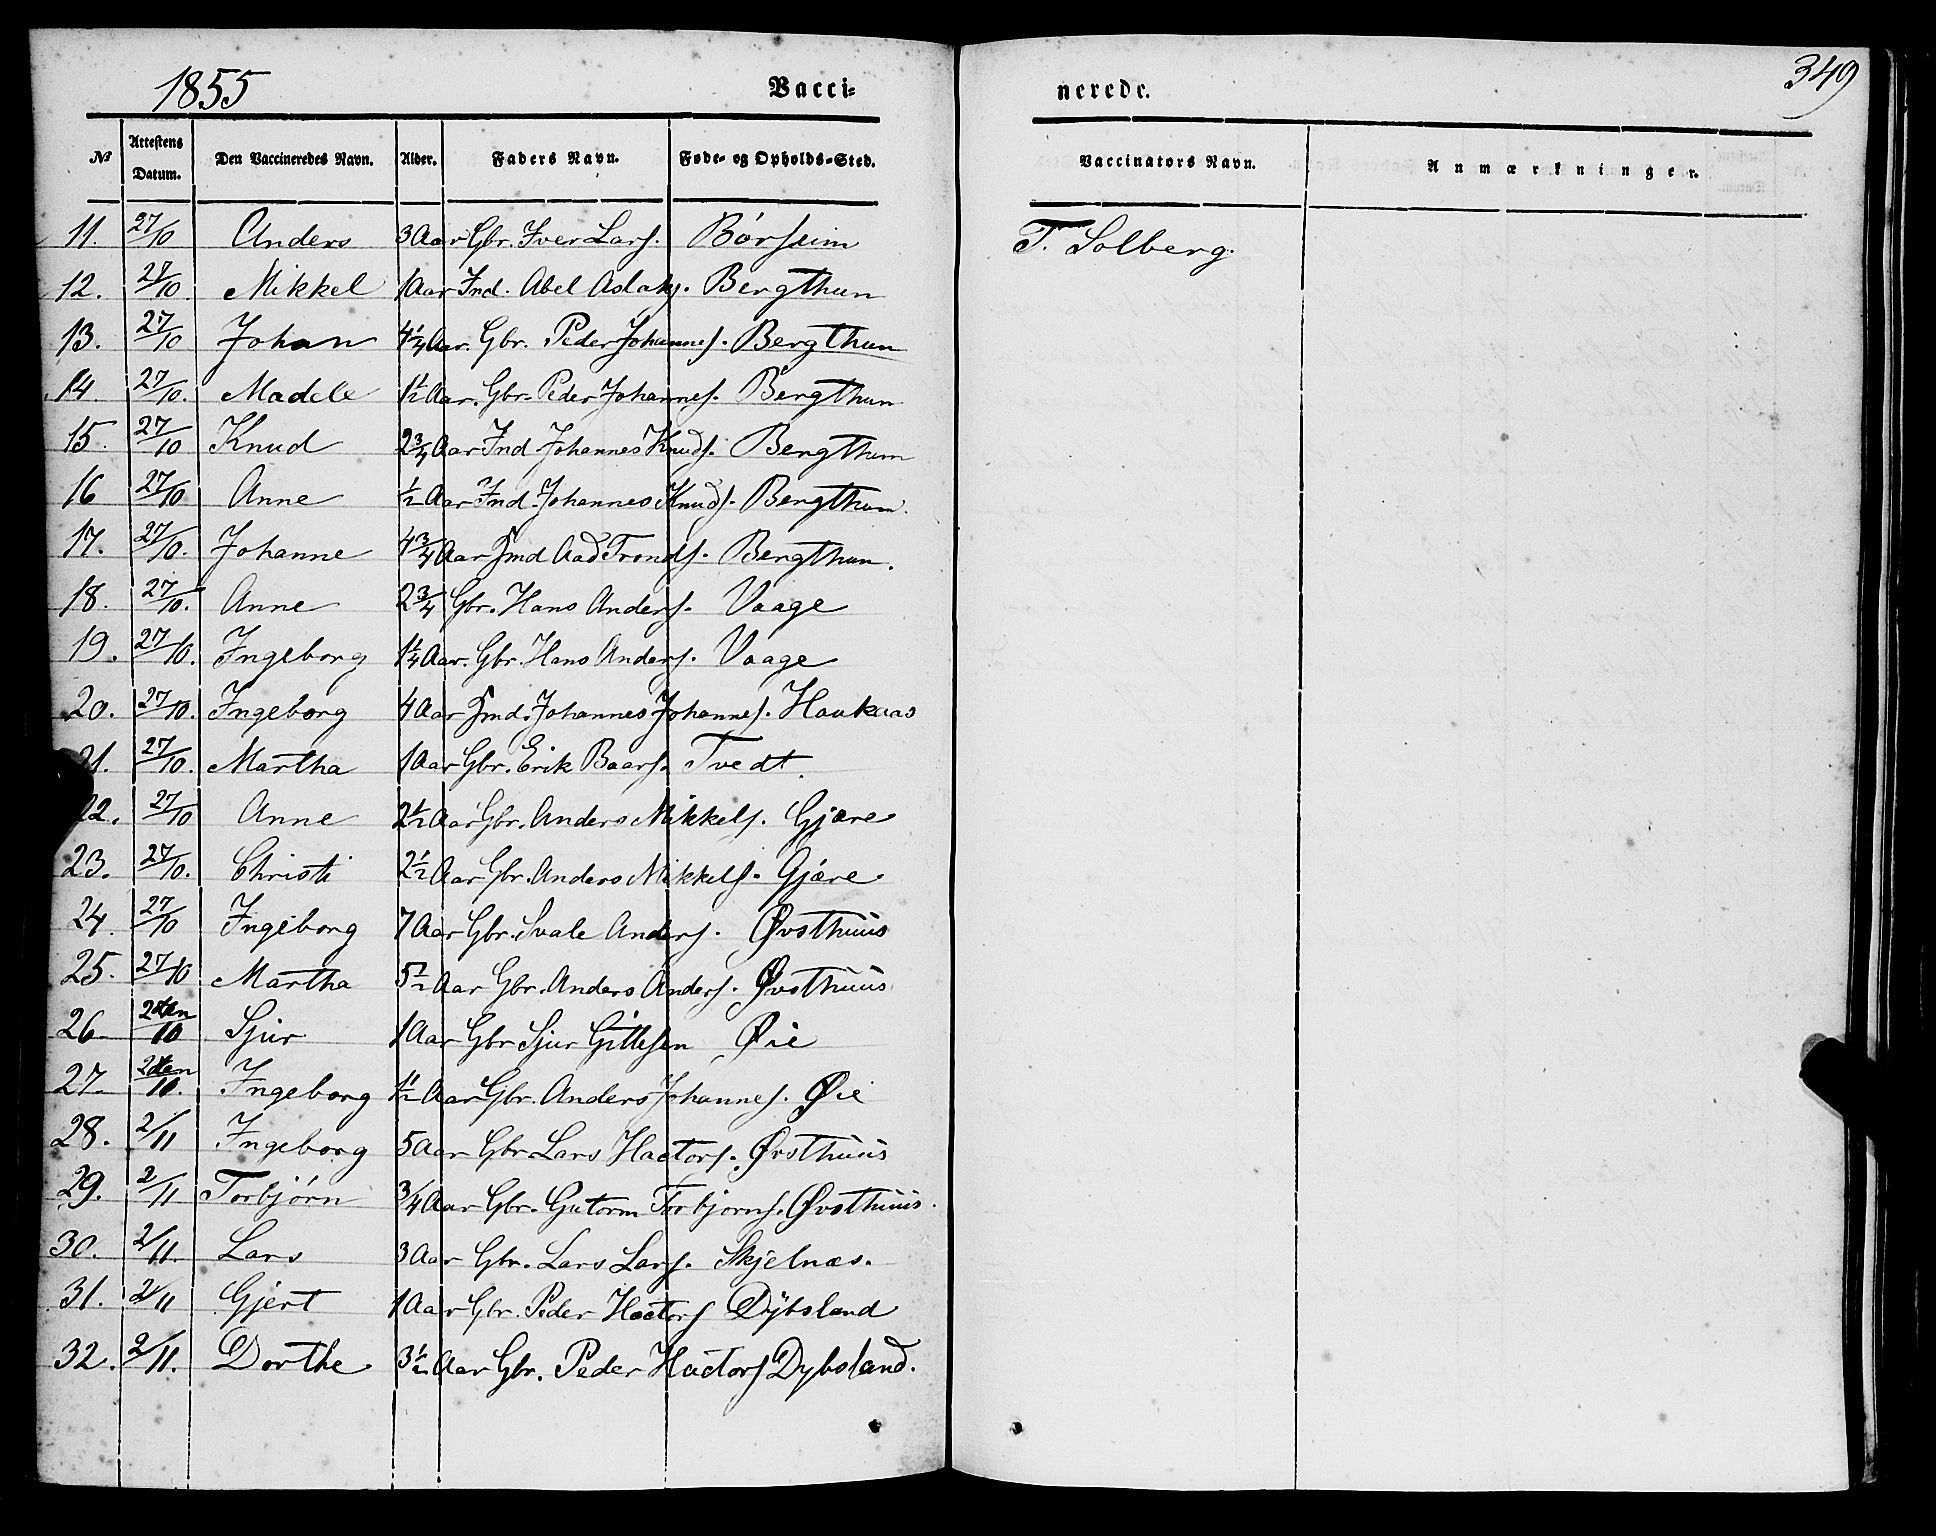 1855
Vacci-
nerede.
349
No Attestens Datum. Den Vaccineredes Navn. Alder. Faders Navn. Føde- og Opholds-Sted. Vaccinators Navn. Anmærkninger.
11. 27/10 Anders 3 Aar Gbr. Iver Lars. Børseim T. Solberg.
12. 27/10. Mikkel 1 Aar Ind. Abel Aslaks. Bergthun
13. 27/10 Johan 4 1/4 Aar. Gbr. Peder Johannes. Bergthun
14. 27/10. Madele 1 1/2 Aar. Gbr. Peder Johannes. Bergthun
15. 27/10 Knud 2 3/4 Aar Ind Johannes Knuds. Bergthun
16 27/10 Anne 1/2 Aar Ind. Johannes Knuds. Bergthun.
17. 27/10. Johanne 4 3/4 Aar Ind Aad Tronds. Bergthun.
18. 27/10. Anne 2 3/4 Gbr. Hans Anders. Vaage
19. 27/10. Ingeborg 1 1/4 Aar. Gbr. Hans Anders. Vaage
20. 27/10. Ingeborg 4 Aar Ind. Johannes Johannes. Haukaas
21. 27/10. Martha 1 Aar Gbr. Erik Baars. Tvedt.
22. 27/10 Anne 2 1/2 Aar Gbr. Anders Mikkels. Gjære
23. 27/10. Christi 2 1/2 Aar Gbr. Anders Mikkels. Gjære
24. 27/10 Ingeborg 7 Aar Gbr. Svale Anders. Øvsthuus
25. 27/10 Martha 5 1/2 Aar Gbr. Anders Anders. Øvsthuus
26 /10 Sjur 1 Aar Gbr Sjur Gittlesen Øie
27. /10. Ingeborg 1 1/2 Aar Gbr. Anders Johannes. Øie
28. 2/11 Ingeborg 5 Aar Gbr Lars Hactors. Øvsthuus
29. 2/11 Torbjørn 3/4 Aar Gbr. Gutorm Torbjørns. Øvsthuus.
30. 2/11. Lars 3 Aar Gbr. Lars Lars. Skjelnæs.
31. 2/11 Gjert 1 Aar Gbr. Peder Hactors Dybsland
32. 2/11. Dorthe 3 1/2 Aar Gbr. Peder Hactors Dybsland.